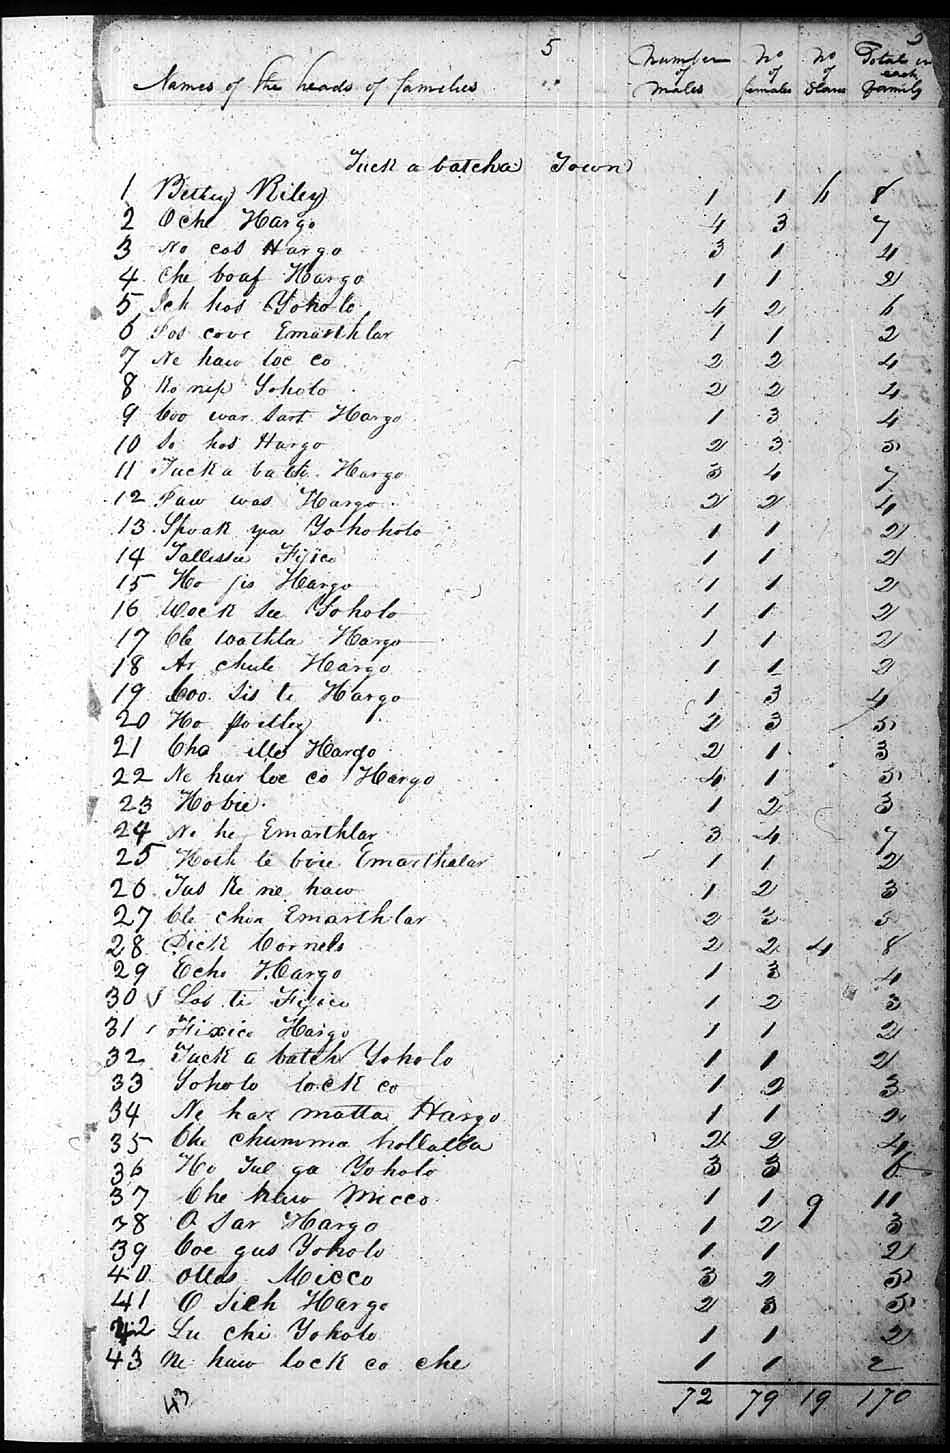 5 5
Names of the heads of families Number of Males No of females No of Slaves Total in each family
Tuck a batcha Town
1 Betsey Riley 1 1 6 8
2 Oche Hargo 4 3 7
3 No cos Hargo 3 1 4
4 Che boaf Hargo 1 1 2
5 hos Yoholo 4 2 6
6 Pos cove Emarthlar 1 1 2
7 Ne haw loc co 2 2 4
8 Ko nip Yoholo 2 2 4
9 Coo war sart Hargo 1 3 4
10 So hos Hargo 2 3 5
11 Tuck a batch Hargo 3 4 7
12 Paw was Hargo 2 2 4
13 Spoak Yohoholo 1 1 2
14 Tallissee Fijico 1 1 2
15 Ho jis Hargo 1 1 2
16 Wock see Yoholo 1 1 2
17 Cle wathla Hargo 1 1 2
18 Ar chule Hargo 1 1 2
19 Coo sis te Hargo 1 3 4
20 Ho 2 3 5
21 Cho illo Hargo 2 1 3
22 Ne har loc co Hargo 4 1 5
23 Ho bie 1 2 3
24 No he Emarthlar 3 4 7
25 Hoth le boie Emarthalar 1 1 2
26 Tus ke ne haw 1 2 3
27 Cle chon Emarthlar 2 3 5
28 Dick Cornels 2 2 4 8
29 Echo Hargo 1 3 4
30 Los te Fijico 1 2 3
31 Fixico Hargo 1 1 2
32 Tuck a batch Yoholo 1 1 2
33 Yoholo lock co 1 2 3
34 Ne har matta Hargo 1 1 2
35 Che chumma hollatta 2 2 4
36 Ho Tul ga Yoholo 3 3 6
37 Che haw Micco 1 1 9 11
38 O sar Hargo 1 2 3
39 Coe gus Yoholo 1 1 2
40 Ollos Micco 3 2 5
41 O sich Hargo 2 3 5
42 Lu chi Yoholo 1 1 2
43 Ne haw lock co che 1 1 2
43 72 79 19 170